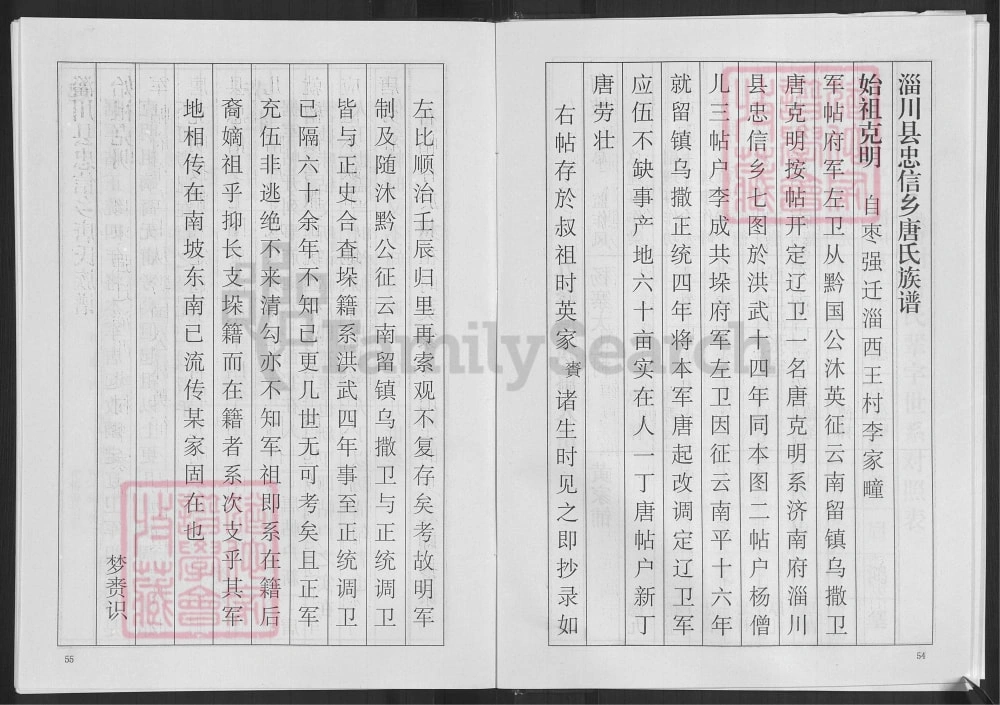 淄川县忠信乡唐氏族谱
始祖克明 自枣强迁淄西王村李家疃
军帖府军左卫从黔国公沐英征云南留镇乌撒卫
唐克明按帖开定辽卫一名唐克明系济南府淄川
县忠信乡七图於洪武十四年同本图二帖户杨僧
儿三帖户李成共垛府军左卫因征云南平十六年
就留镇乌撒正统四年将本军唐起改调定辽卫军
应伍不缺事产地六十亩实在人一丁唐帖户新丁
唐劳壮
右帖存於叔祖时英家 赉 诸生时见之即抄录如
54
左比顺治壬辰归里再索观不复存矣考故明军
制及随沐黔公征云南留镇乌撒卫与正统调卫
皆与正史合查垛籍系洪武四年事至正统调卫
已隔六十余年不知已更几世无可考矣且正军
充伍非逃绝不来清勾亦不知军祖即系在籍后
裔嫡祖乎抑长支垛籍而在籍者系次支乎其军
地相传在南坡东南已流传某家固在也
梦赉识
55
FamilySearch